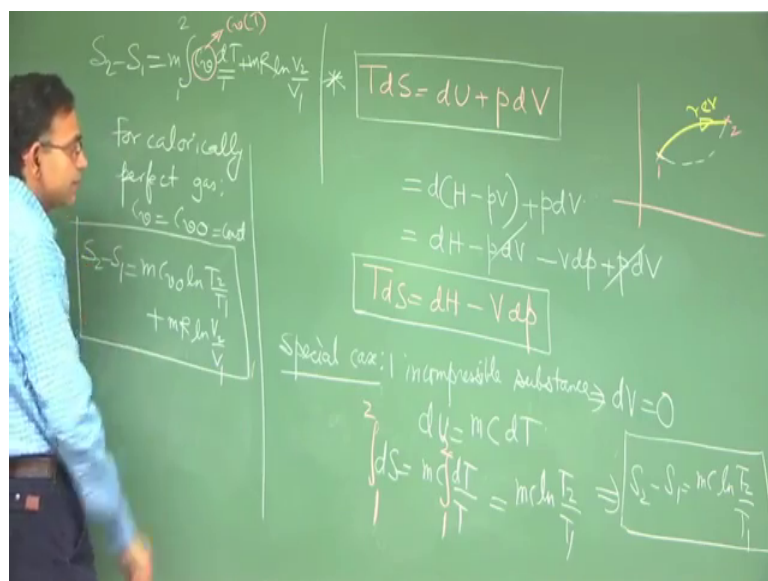 S₂-S₁ = m ∫₁² Cv dT/T + mR ln V₂/V₁
Cv(T)
for calorically
perfect gas:
Cv = Cv0 = const
S₂-S₁ = mCv0 ln T₂/T₁
+ mR ln V₂/V₁
* TdS = dU + pdV
= d(H - pV) + pdV
= dH - pdV - Vdp + pdV
TdS = dH - Vdp
Special case: 1 incompressible substance ⇒ dV = 0
dU = mCdT
∫₁² dS = mC ∫₁² dT/T = mC ln T₂/T₁ ⇒ S₂-S₁ = mC ln T₂/T₁
rev
1
2